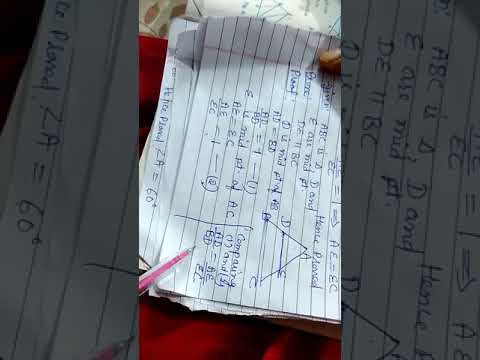 AE/EC = 1 ⇒ AE = EC
Hence Proved
Given: ABC is Δ D and
E are mid pt.
Prove: DE || BC
Proof: D is mid pt of AB
AD = BD
AD/BD = 1 — (1)
E is mid pt. of AC
AE = EC
AE/EC = 1 — (2)
Comparing
(1) and (2)
AD/BD = AE/EC
A
D
E
B
C
Hence Proved ∠A = 60°